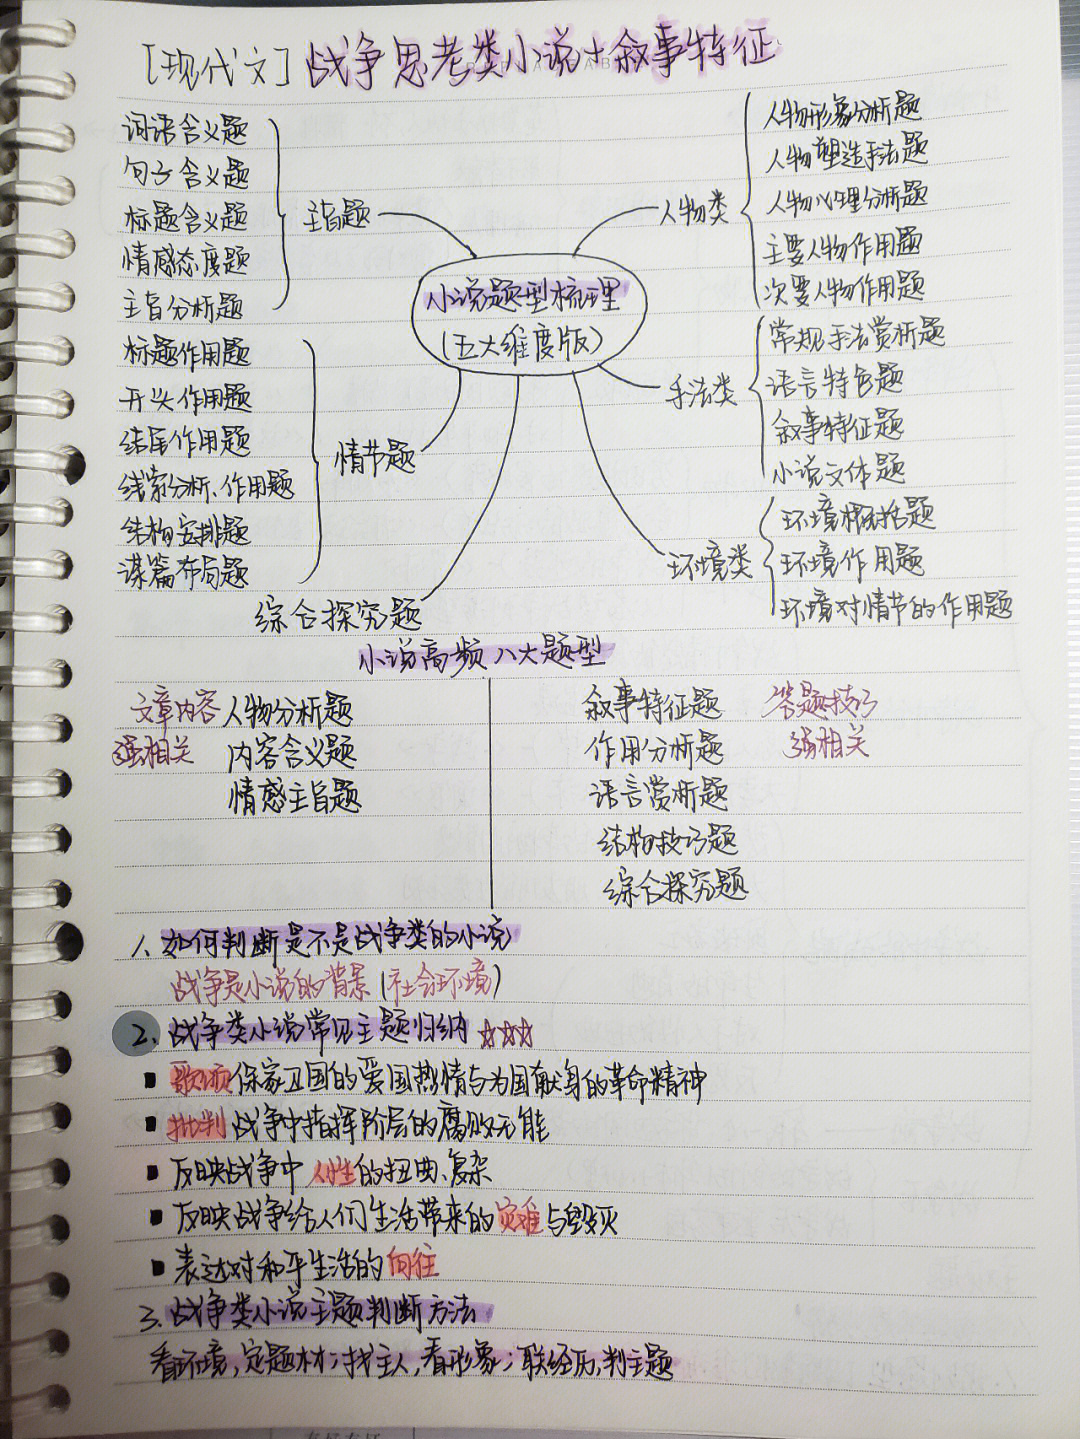 [现代文] 战争思考类小说+叙事特征
词语含义题
句子含义题
标题含义题
情感态度题
主旨分析题
主旨题
标题作用题
开头作用题
结尾作用题
线索分析、作用题
结构安排题
谋篇布局题
情节题
小说题型梳理
(五大维度版)
人物类
人物形象分析题
人物塑造手法题
人物心理分析题
主要人物作用题
次要人物作用题
手法类
常规手法赏析题
语言特色题
叙事特征题
小说文体题
环境类
环境概括题
环境作用题
环境对情节的作用题
综合探究题
小说高频八大题型
文章内容
强相关
人物分析题
内容含义题
情感主旨题
叙事特征题
作用分析题
语言赏析题
结构技巧题
综合探究题
答题技巧
强相关
1. 如何判断是不是战争类的小说
战争是小说的背景(社会环境)
2. 战争类小说常见主题归纳 ☆☆☆
▪ 歌颂保家卫国的爱国热情与为国献身的革命精神
▪ 批判战争中指挥阶层的腐败无能
▪ 反映战争中人性的扭曲、复杂
▪ 反映战争给人们生活带来的灾难与毁灭
▪ 表达对和平生活的向往
3. 战争类小说主题判断方法
看环境,定题材;找主人,看形象;联经历,判主题